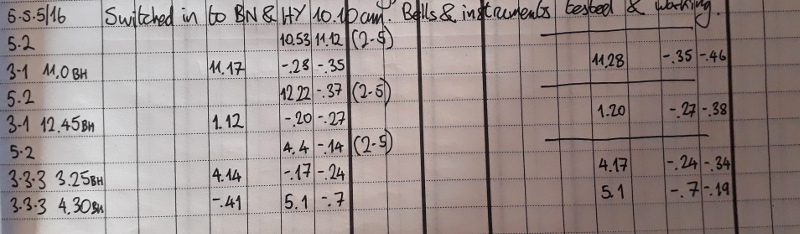 6-5-5/16 Switched in to BN & HY 10.10 am. Bells & instruments tested & working.
5.2 10.53 11.12 (2-5)
3-1 11.0 BH 11.17 -.28 -.35 11.28 -.35 -.46
5.2 12.22 -.37 (2-5)
3-1 12.45 BH 1.12 -.20 -.27 1.20 -.27 -.38
5.2 4.4 -.14 (2-5)
3.3.3 3.25 BH 4.14 -.17 -.24 4.17 -.24 -.34
3.3.3 4.30 BH -.41 5.1 -.7 5.1 -.7 -.19